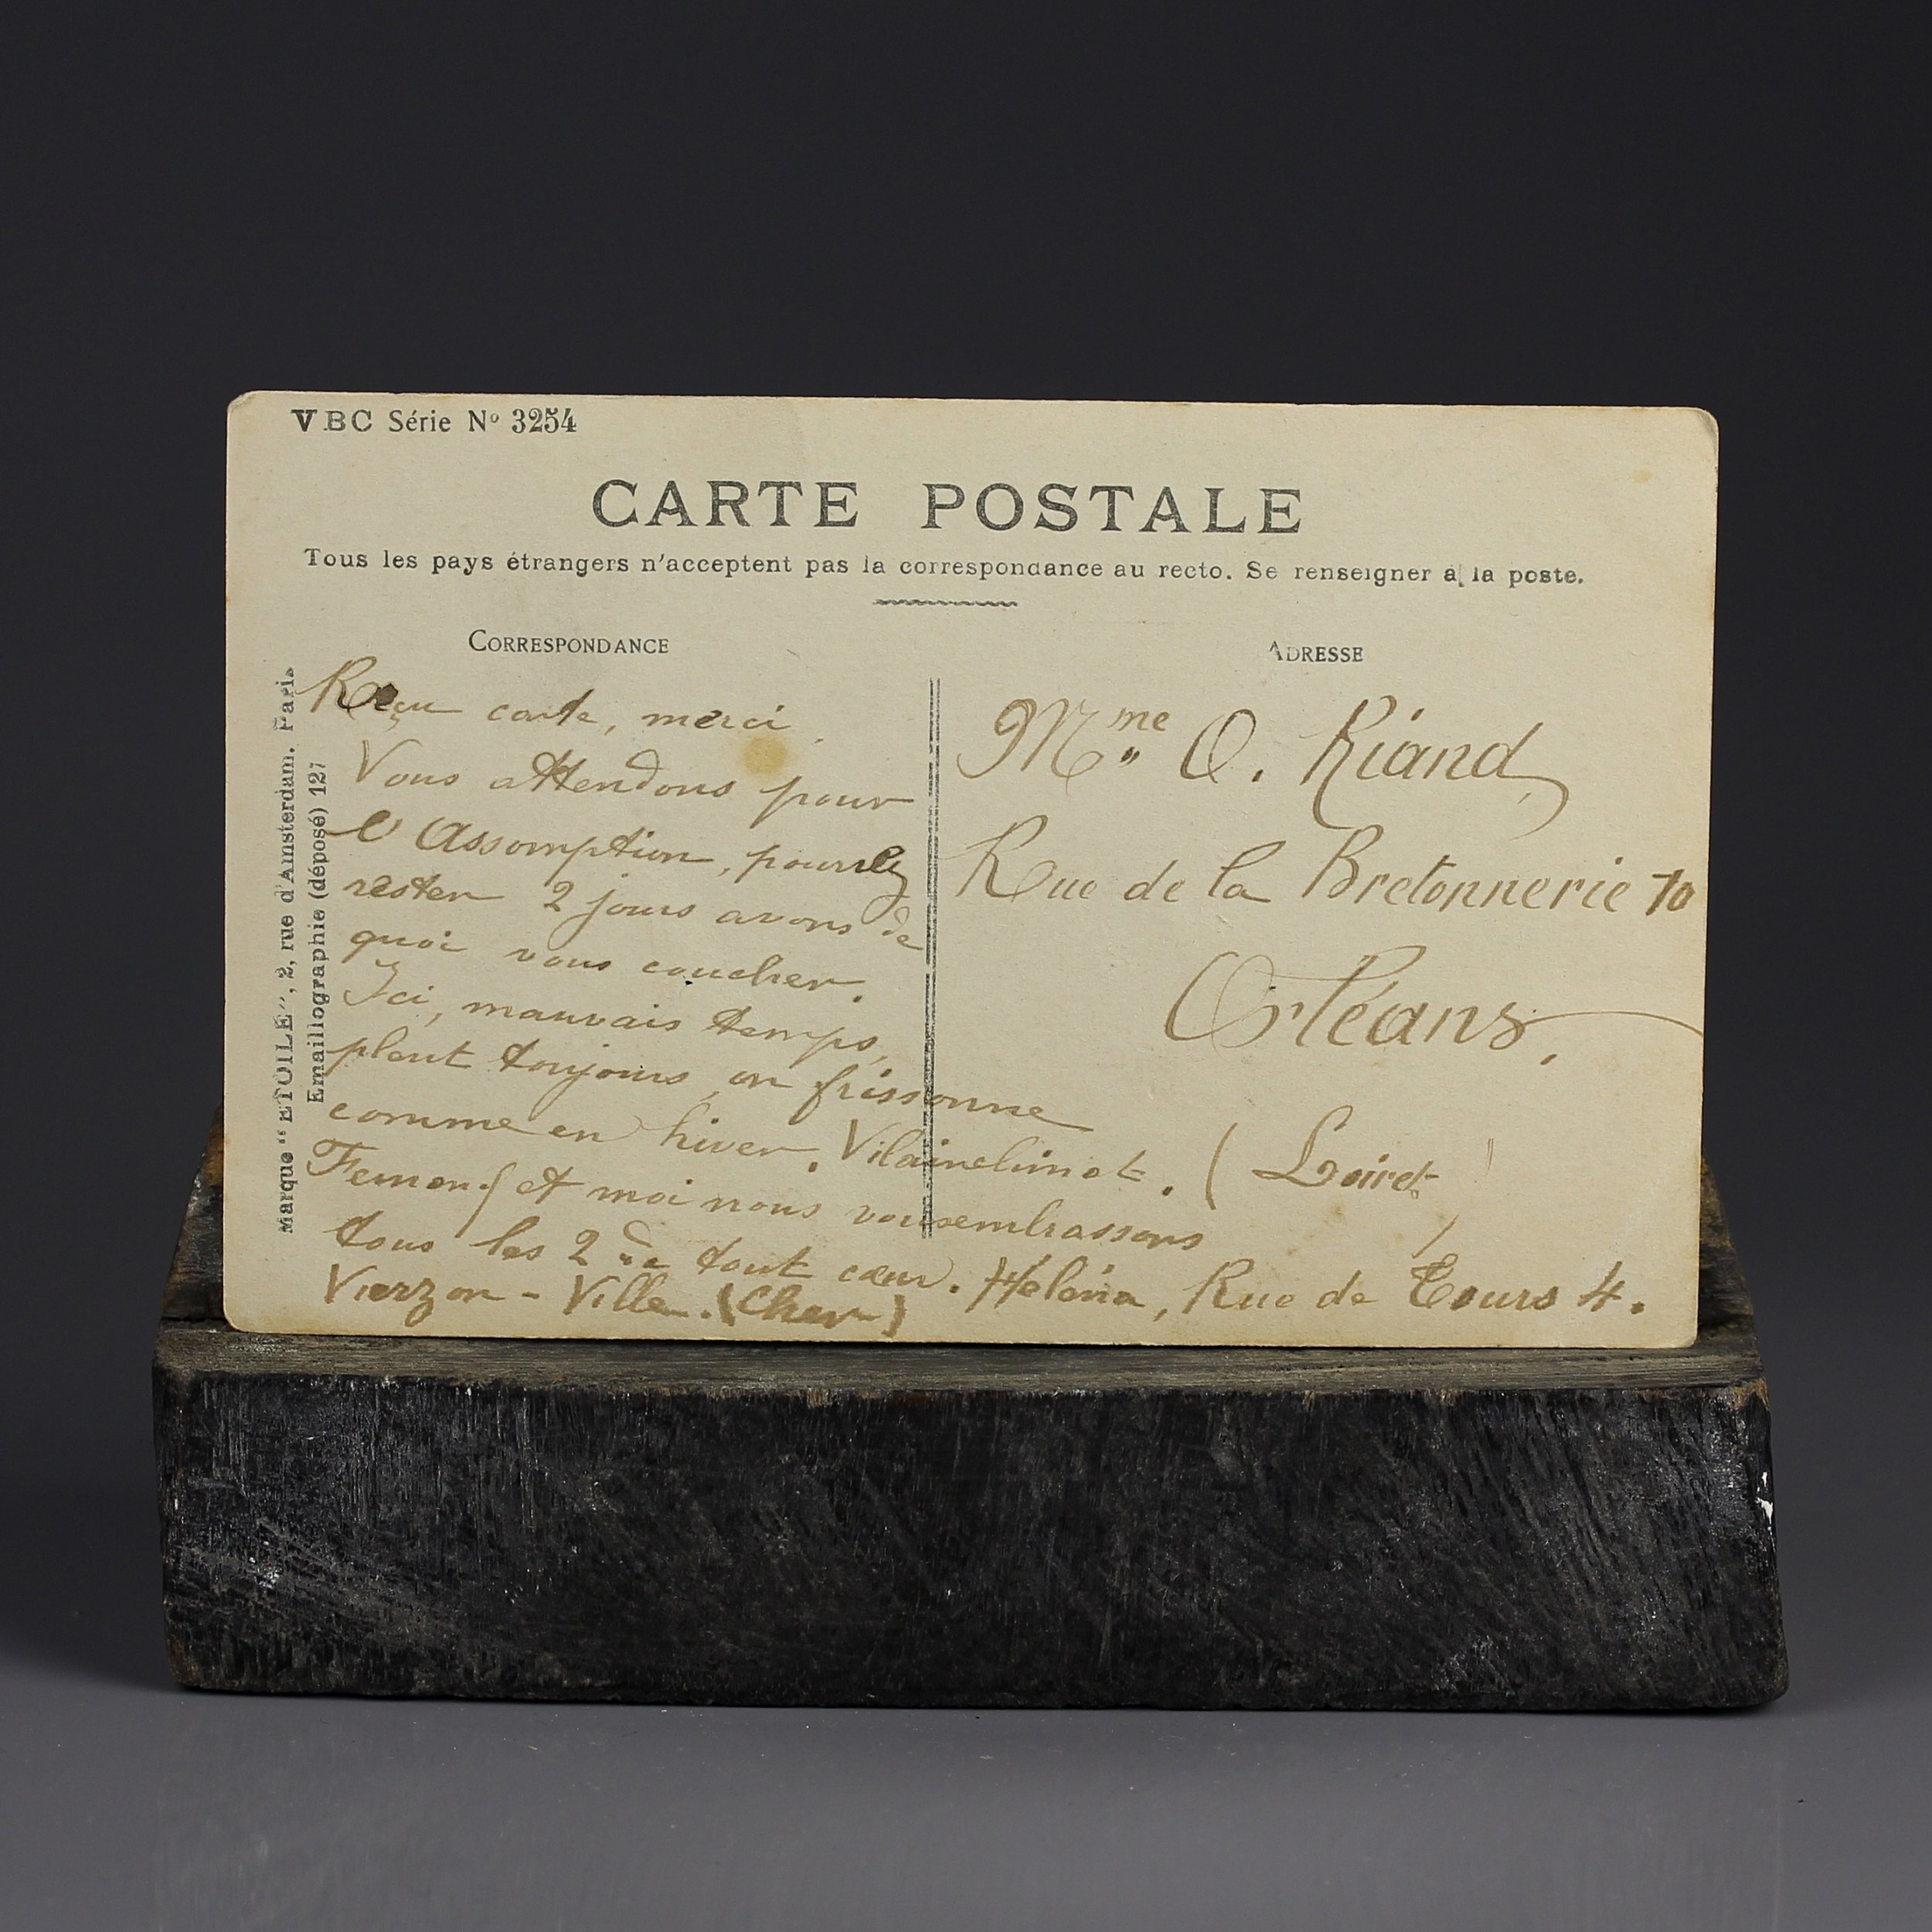 VBC Série Nº 3254
CARTE POSTALE
Tous les pays étrangers n'acceptent pas la correspondance au recto. Se renseigner à la poste.
CORRESPONDANCE
ADRESSE
Marque "ETOILE", 2, rue d'Amsterdam. Paris
Emaillographie (déposé) 127
Reçu carte, merci.
Vous attendons pour
l'Assomption, pourrez
rester 2 jours avons de
quoi vous coucher.
Ici, mauvais temps,
pleut toujours, on frissonne
comme en hiver. Vilain climat.
et moi nous vous embrassons
tous les 2 de tout cœur. Héléna, Rue de Tours 4.
Vierzon-Ville. (Cher)
Mme O. Riand,
Rue de la Bretonnerie 70
Orléans.
(Loiret)